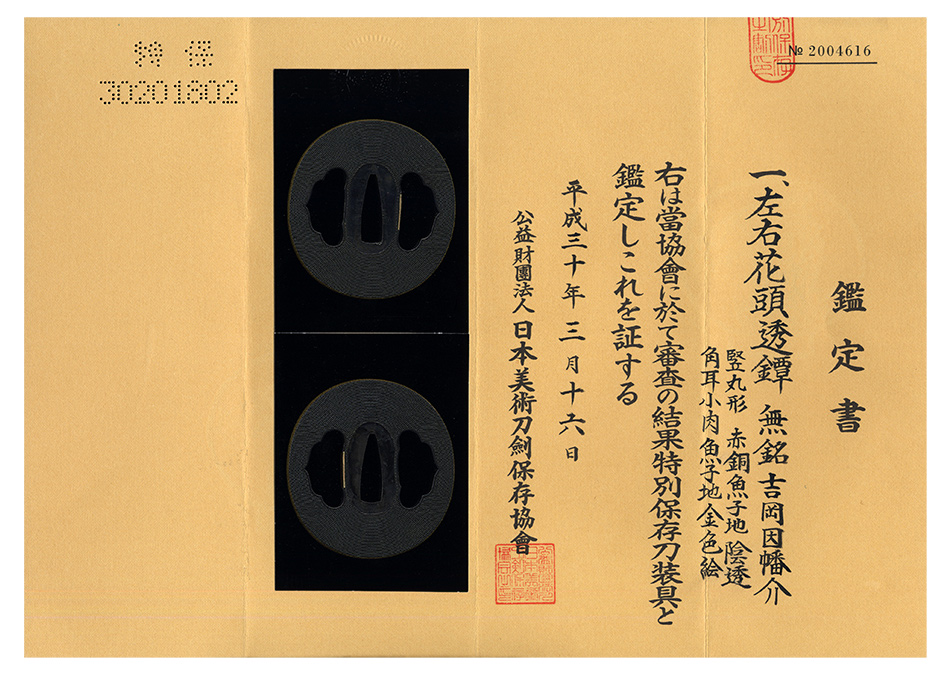 № 2004616
鑑定書
一、左右花頭透鐔 無銘 吉岡因幡介
竪丸形 赤銅魚子地 陰透
角耳小肉 魚子地金色絵
右は當協會に於て審査の結果特別保存刀装具と
鑑定しこれを証する
平成三十年三月十六日
公益財團法人 日本美術刀剣保存協會
特保
30201802